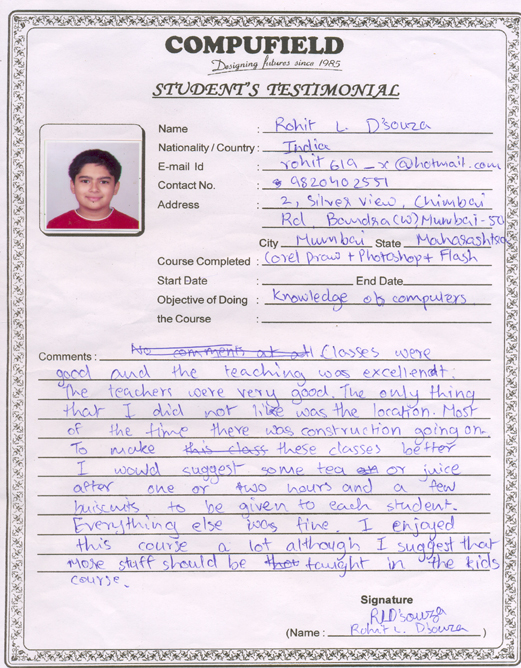 COMPUFIELD
Designing futures since 1985
STUDENT'S TESTIMONIAL
Name : Rohit L. D'souza
Nationality / Country : India
E-mail Id : rohit619_x@hotmail.com
Contact No. : 9820402551
Address : 2, Silver View, Chimbai
Rd, Bandra(W) Mumbai-50
City Mumbai State Maharashtra
Course Completed : Corel Draw + Photoshop + Flash
Start Date : End Date
Objective of Doing : Knowledge of computers
the Course :
Comments : No comments at all Classes were
good and the teaching was excellent.
The teachers were very good. The only thing
that I did not like was the location. Most
of the time there was construction going on.
To make this class these classes better
I would suggest some tea or juice
after one or two hours and a few
buiscuits to be given to each student.
Everything else was fine. I enjoyed
this course a lot although I suggest that
more stuff should be taught in the kids
course.
Signature
RLD'souza
(Name : Rohit L. D'souza )